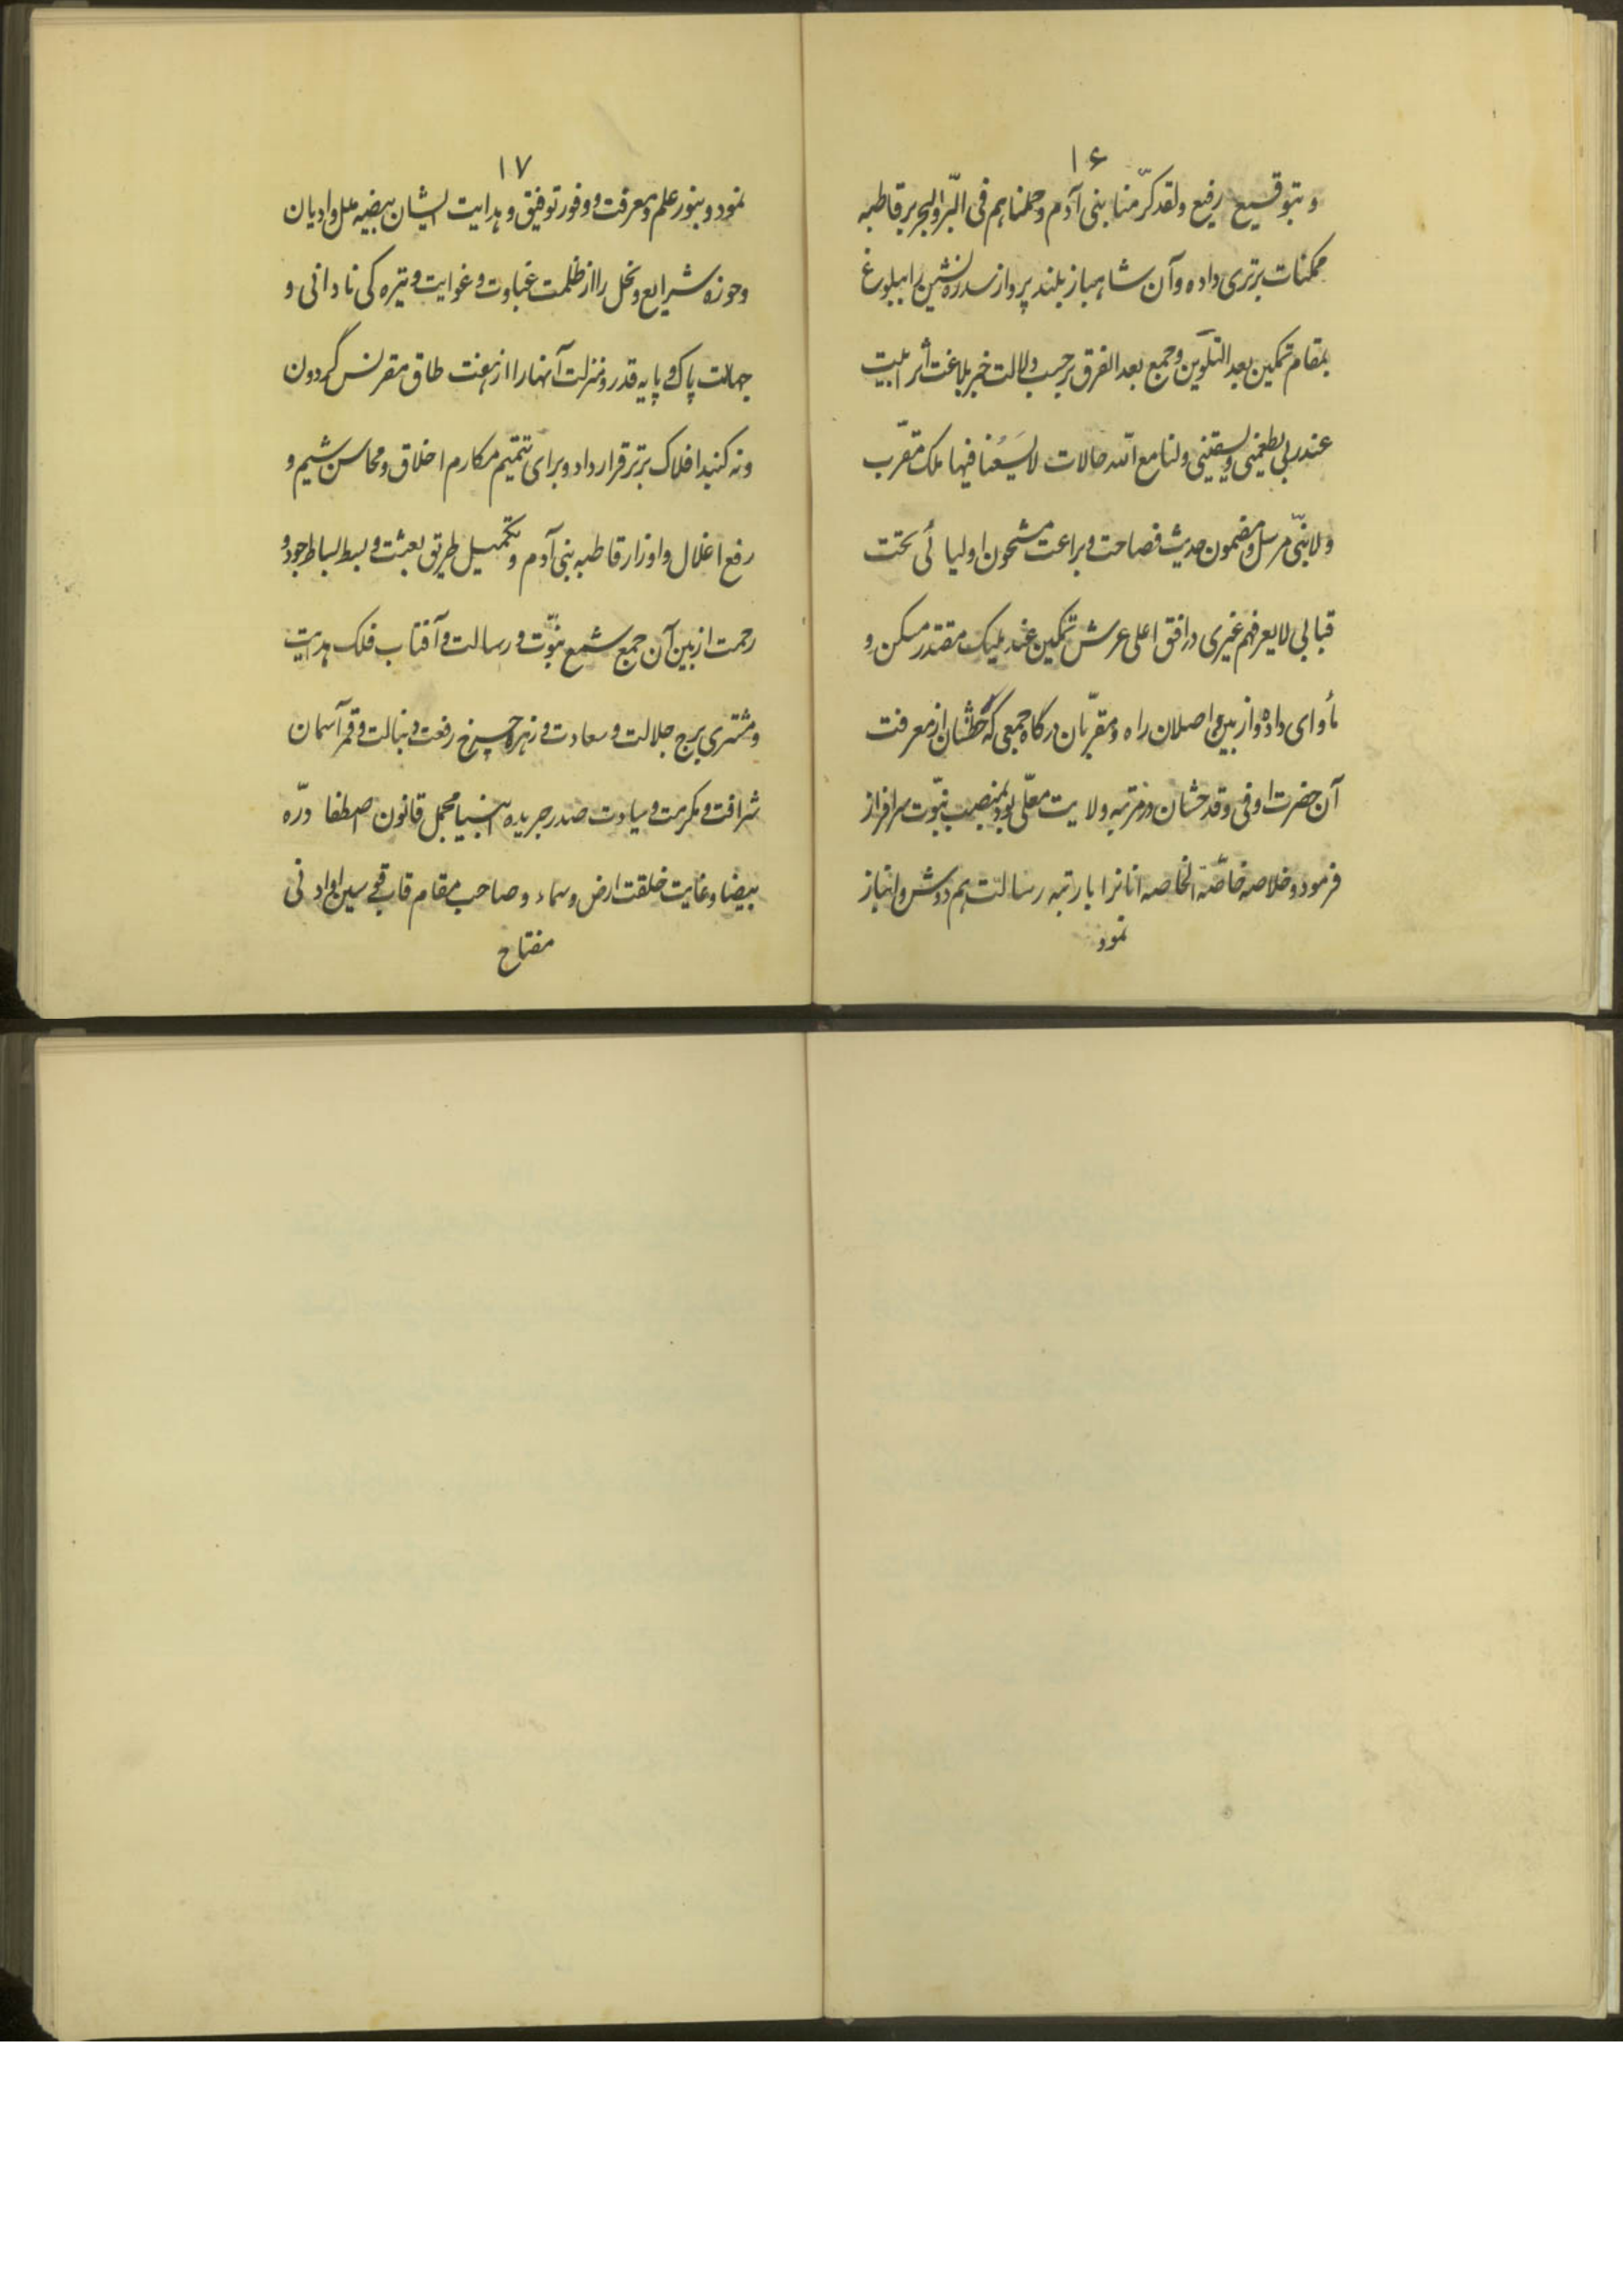 ۱۶
و بتوقیع رفیع ولقد کرّمنا بنی آدم وحملناهم فی البّر والبحر بر قاطبه
ممکنات برتری داده وآن شاهباز بلند پرواز سدره نشین را ببلوغ
بمقام تمکین بعد التلوین وجمع بعد الفرق برحسب دلالت خبر بلاغت اثر ابیت
عند ربی یطعمنی ویسقینی ولنا مع الله حالات لا یَسَعُنا فیها ملک مقرّب
ولا نبیّ مرسل ومضمون حدیث فصاحت وبراعت مشحون اولیائی تحت
قبابی لا یعرفهم غیری در افق اعلی عرش تمکین عند ملیک مقتدر مسکن و
مأوای داده واز بین واصلان راه ومقرّبان درگاه جمعی که حظّشان از معرفت
آن حضرت اوفی وقدحشان در مرتبه ولایت معلّی بود بمنصب نبوّت سرافراز
فرمود وخلاصه خاصّة الخاصه آنانرا با رتبه رسالت هم دوش وانباز
نمود
۱۷
نمود وبنور علم ومعرفت ووفور توفیق وهدایت ایشان بیضه ملل وادیان
وحوزه شرایع ونحل را از ظلمت غباوت وغوایت وتیره کی نادانی و
جهالت پاک وپایه قدر ومنزلت آنها را از هفت طاق مقرنس گردون
ونه کنبد افلاک برتر قرار داد وبرای تتمیم مکارم اخلاق ومحاسن شیم و
رفع اغلال واوزار قاطبه بنی آدم وتکمیل طریق بعثت وبسط بساط جود و
رحمت از بین آن جمع شمع نبوّت ورسالت وآفتاب فلک هدایت
ومشتری برج جلالت وسعادت وزهره چرخ رفعت ونبالت وقمر آسمان
شرافت ومکرمت وسیادت صدر جریده انبیا مجمل قانون اصطفا درّه
بیضا وغایت خلقت ارض وسماء وصاحب مقام قاب قوسین او ادنی
مفتاح